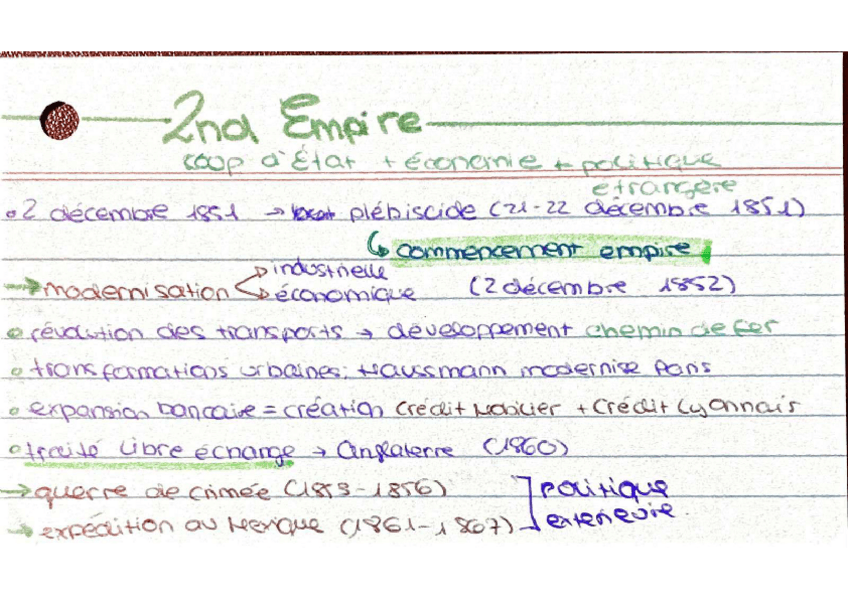 2nd Empire
coup d'État + économie + politique
etrangère
• 2 décembre 1851 → plébiscide (21-22 décembre 1851)
↳ commencement empire
→ modernisation → industrielle
→ économique (2 décembre 1852)
• révolution des transports → développement chemin de fer
• transformations urbaines: Haussmann modernise Paris
• expansion bancaire = création Crédit Mobilier + Crédit Lyonnais
• traité libre échange → Angleterre (1860)
→ guerre de crimée (1853-1856) politique
→ expédition au Mexique (1861-1867) exterieure.